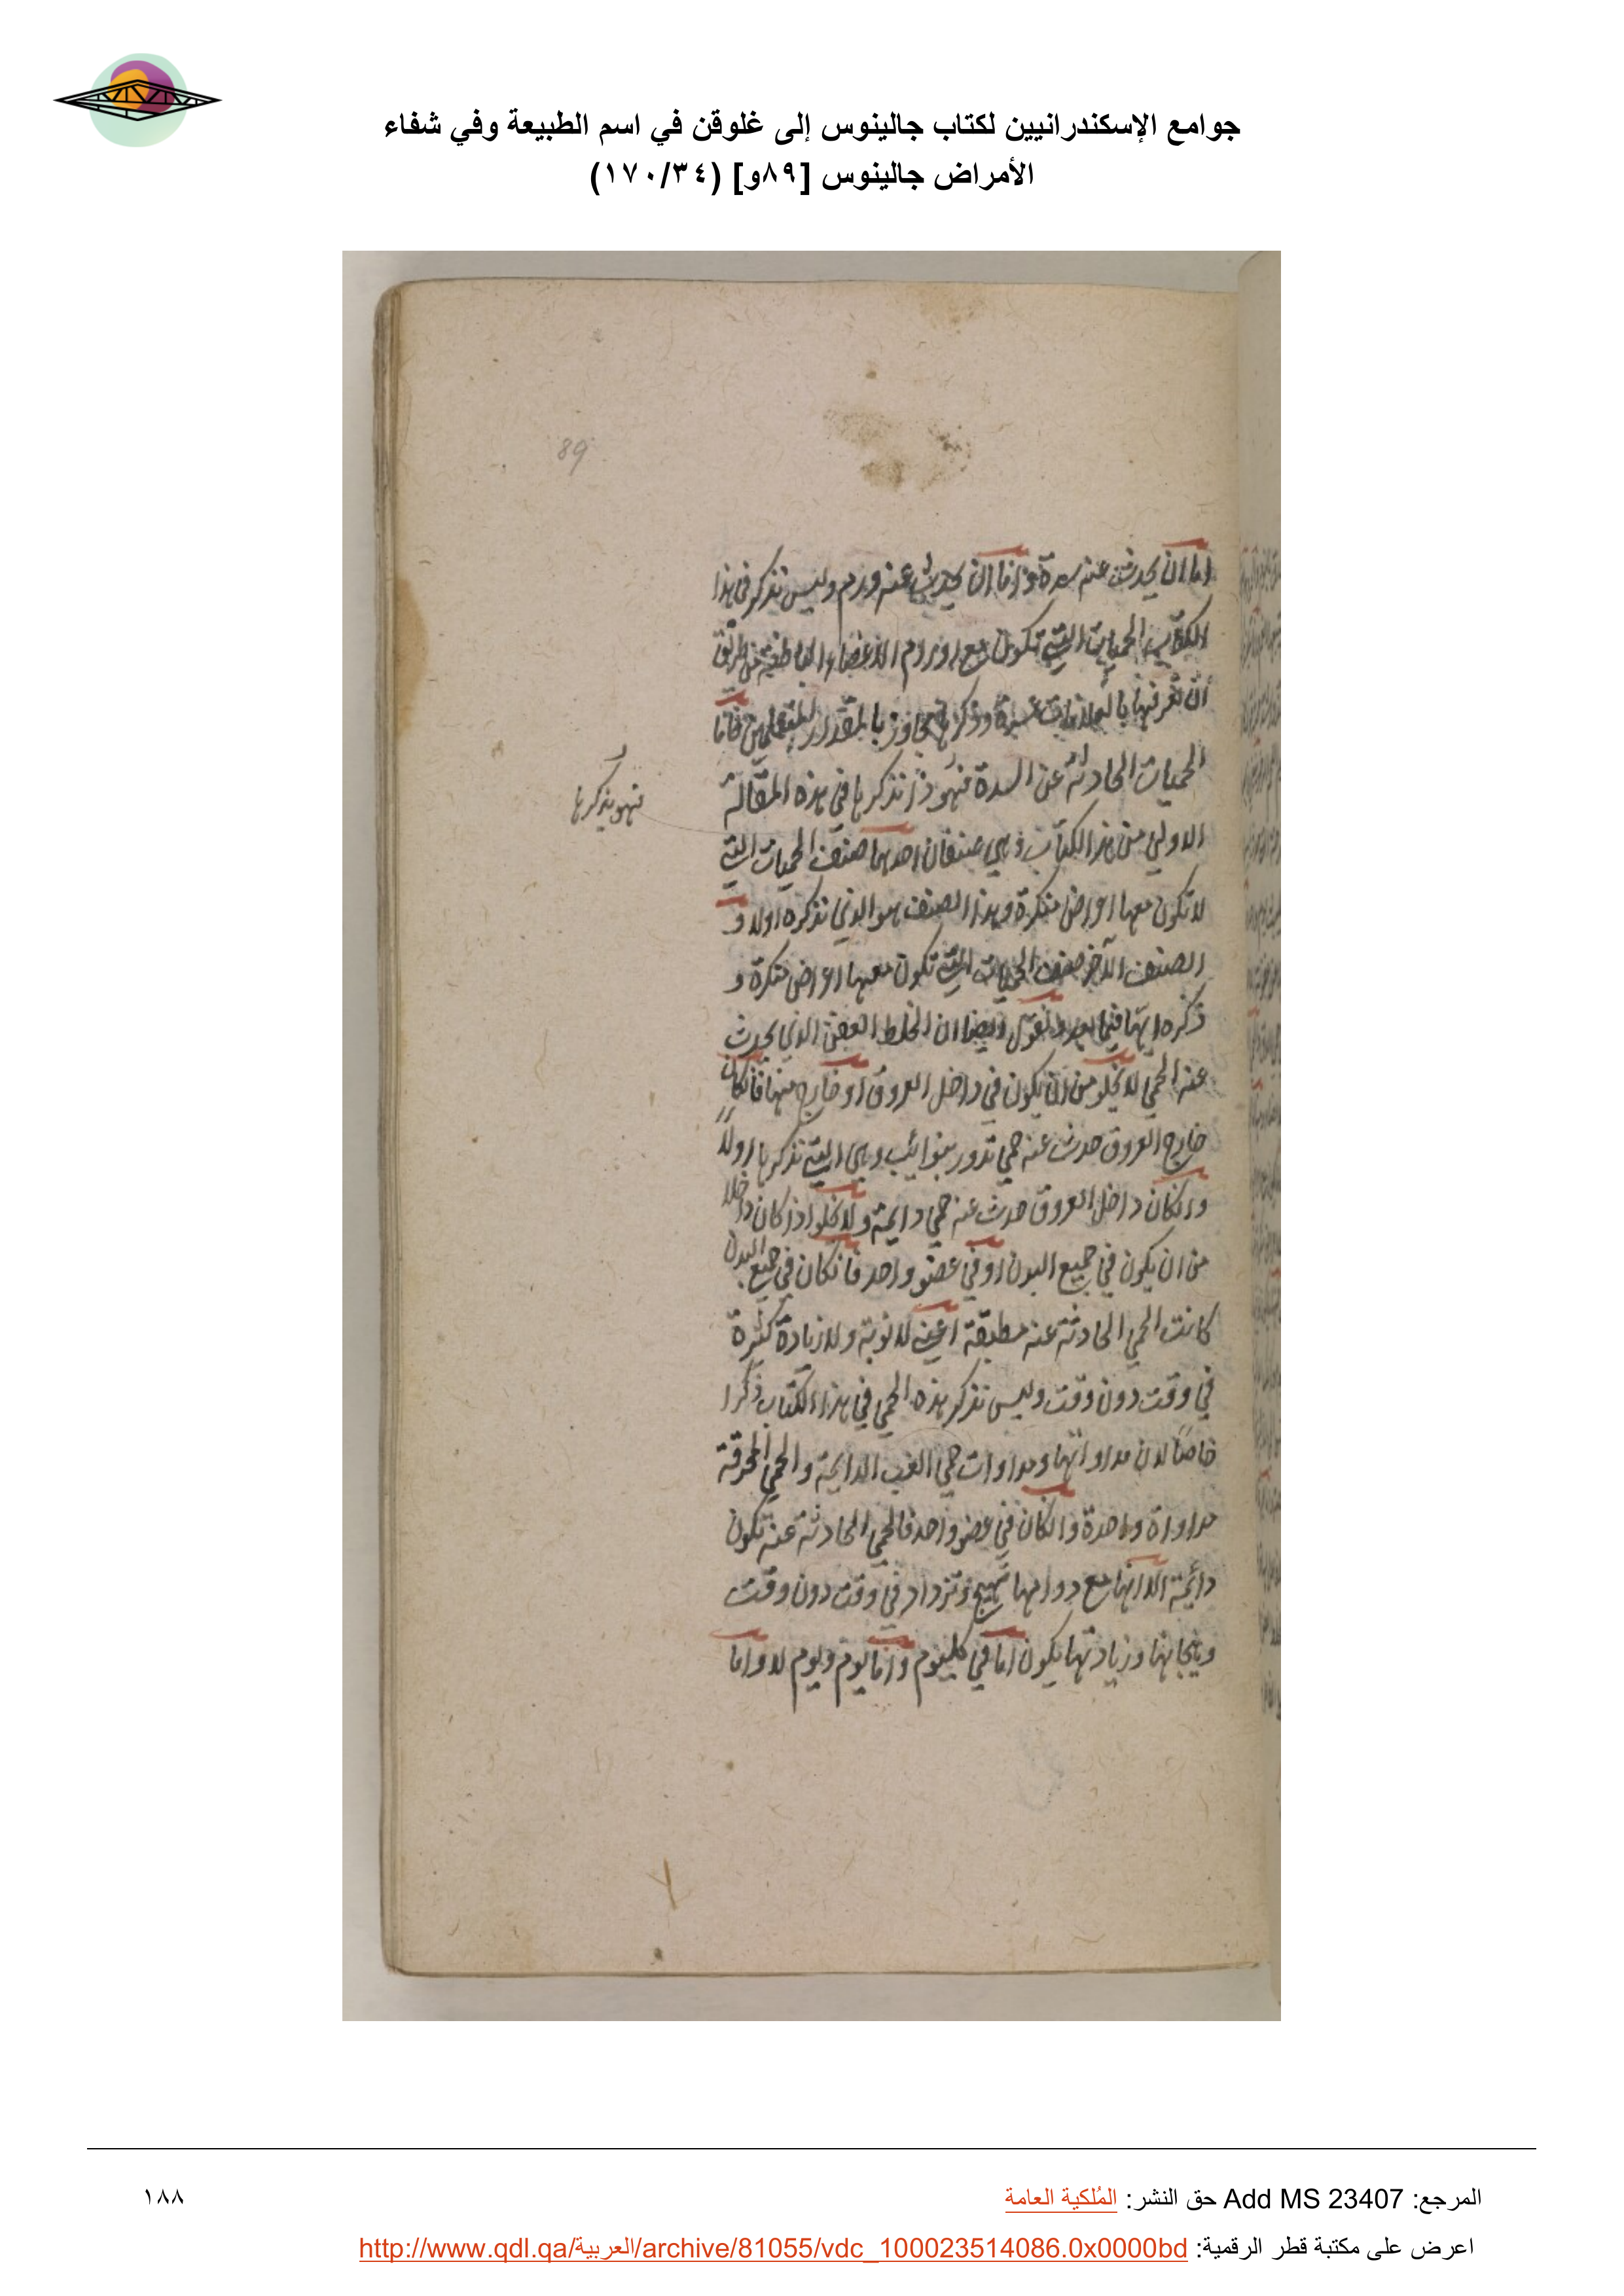 جوامع الإسكندرانيين لكتاب جالينوس إلى غلوقن في اسم الطبيعة وفي شفاء
الأمراض جالينوس [٨٩و] (١٧٠/٣٤)
89
اما ان يحدث عنه سدة واما ان يحدث عنه ورم وليس نذكر في هذا
الكتاب الحميات التي تكون مع اورام الاعضاء الباطنية من طريق
ان تعرفها بالعلامات عسرة وذكرها يجاوز بالمقدار المتعلمين فاما
الحميات الحادثة عن السدة فهوذا نذكرها في هذه المقالة
فهو يذكرها
الاولى من هذا الكتاب وهي صنفان احدهما صنف الحميات التي
لا تكون معها اعراض منكرة وهذا الصنف هو الذي نذكره اولا و
الصنف الآخر صنف الحميات التي تكون معها اعراض منكرة و
ذكره ايضا فيما بعد ونقول ايضا ان الخلط العفن الذي يحدث
عنه الحمى لا يخلو من ان يكون في داخل العروق او خارج منها فانكان
خارج العروق حدث عنه حمى تدور بنوائب وهي التي نذكرها اولاً
وانكان داخل العروق حدث عنه حمى دايمة ولا يخلوا اذا كان داخلا
من ان يكون في جميع البدن او في عضو واحد فانكان في جميع البدن
كانت الحمى الحادثة عنه مطبقة اعني لا نوبة ولا زيادة كثيرة
في وقت دون وقت وليس نذكر هذه الحمى في هذا الكتاب ذكرا
خاصًا لان مداواتها ومداوات حمى الغب الدايمة والحمى المحرقة
مداواة واحدة وانكان في عضو واحد فالحمى الحادثة عنه تكون
دائمة الا انها مع دوامها تهيج وتزداد في وقت دون وقت
وهيجانها وزيادتها يكون اما في كليوم واما يوم ويوم لا واما
المرجع: Add MS 23407 حق النشر: المُلكية العامة
١٨٨
اعرض على مكتبة قطر الرقمية: http://www.qdl.qa/العربية/archive/81055/vdc_100023514086.0x0000bd